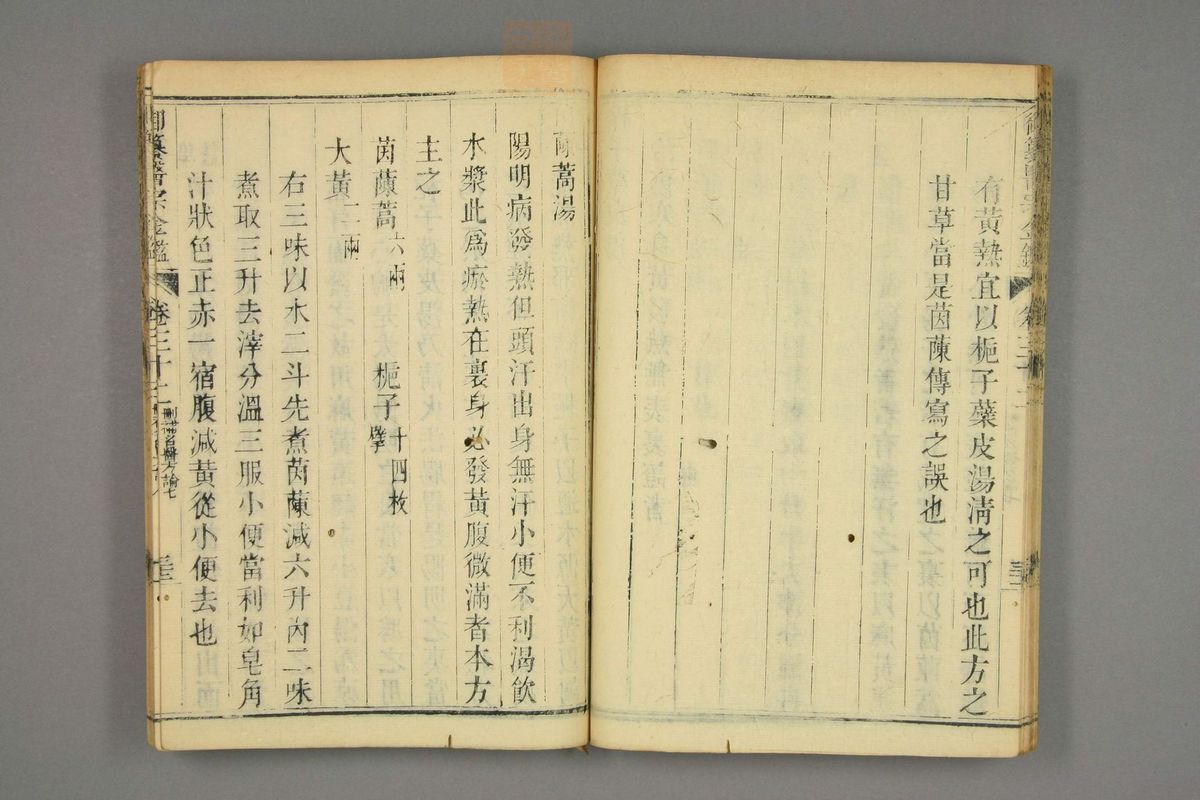 有黃熱宜以梔子蘗皮湯淸之可也此方之
甘草當是茵蔯傳寫之誤也
蔯蒿湯
陽明病發熱但頭汗出身無汗小便不利渴飮
水漿此爲瘀熱在裏身必發黃腹微滿者本方
主之
茵蔯蒿六兩 梔子十四枚擘
大黃二兩
右三味以水二斗先煮茵蔯減六升內二味
煮取三升去滓分溫三服小便當利如皂角
汁狀色正赤一宿腹減黃從小便去也
御纂醫宗金鑑 卷三十二 刪補名醫方論七